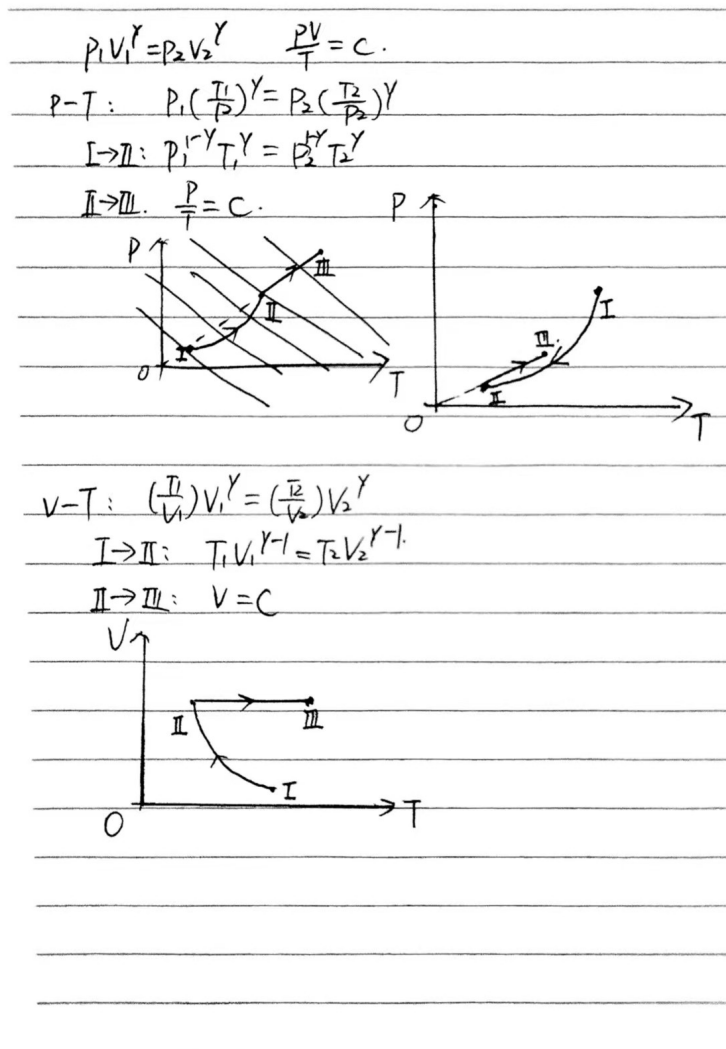 P₁V₁^γ=P₂V₂^γ PV/T=C.
P-T: P₁(T₁/P)^γ=P₂(T₂/P₂)^γ
I→II: P₁^1-γ T₁^γ = P₂^1-γ T₂^γ
II→III. P/T=C.
P I II III O T
P I II III. O T
V-T: (T₁/V₁)V₁^γ=(T₂/V₂)V₂^γ
I→II: T₁V₁^γ-1=T₂V₂^γ-1.
II→III: V=C
V II III I O T